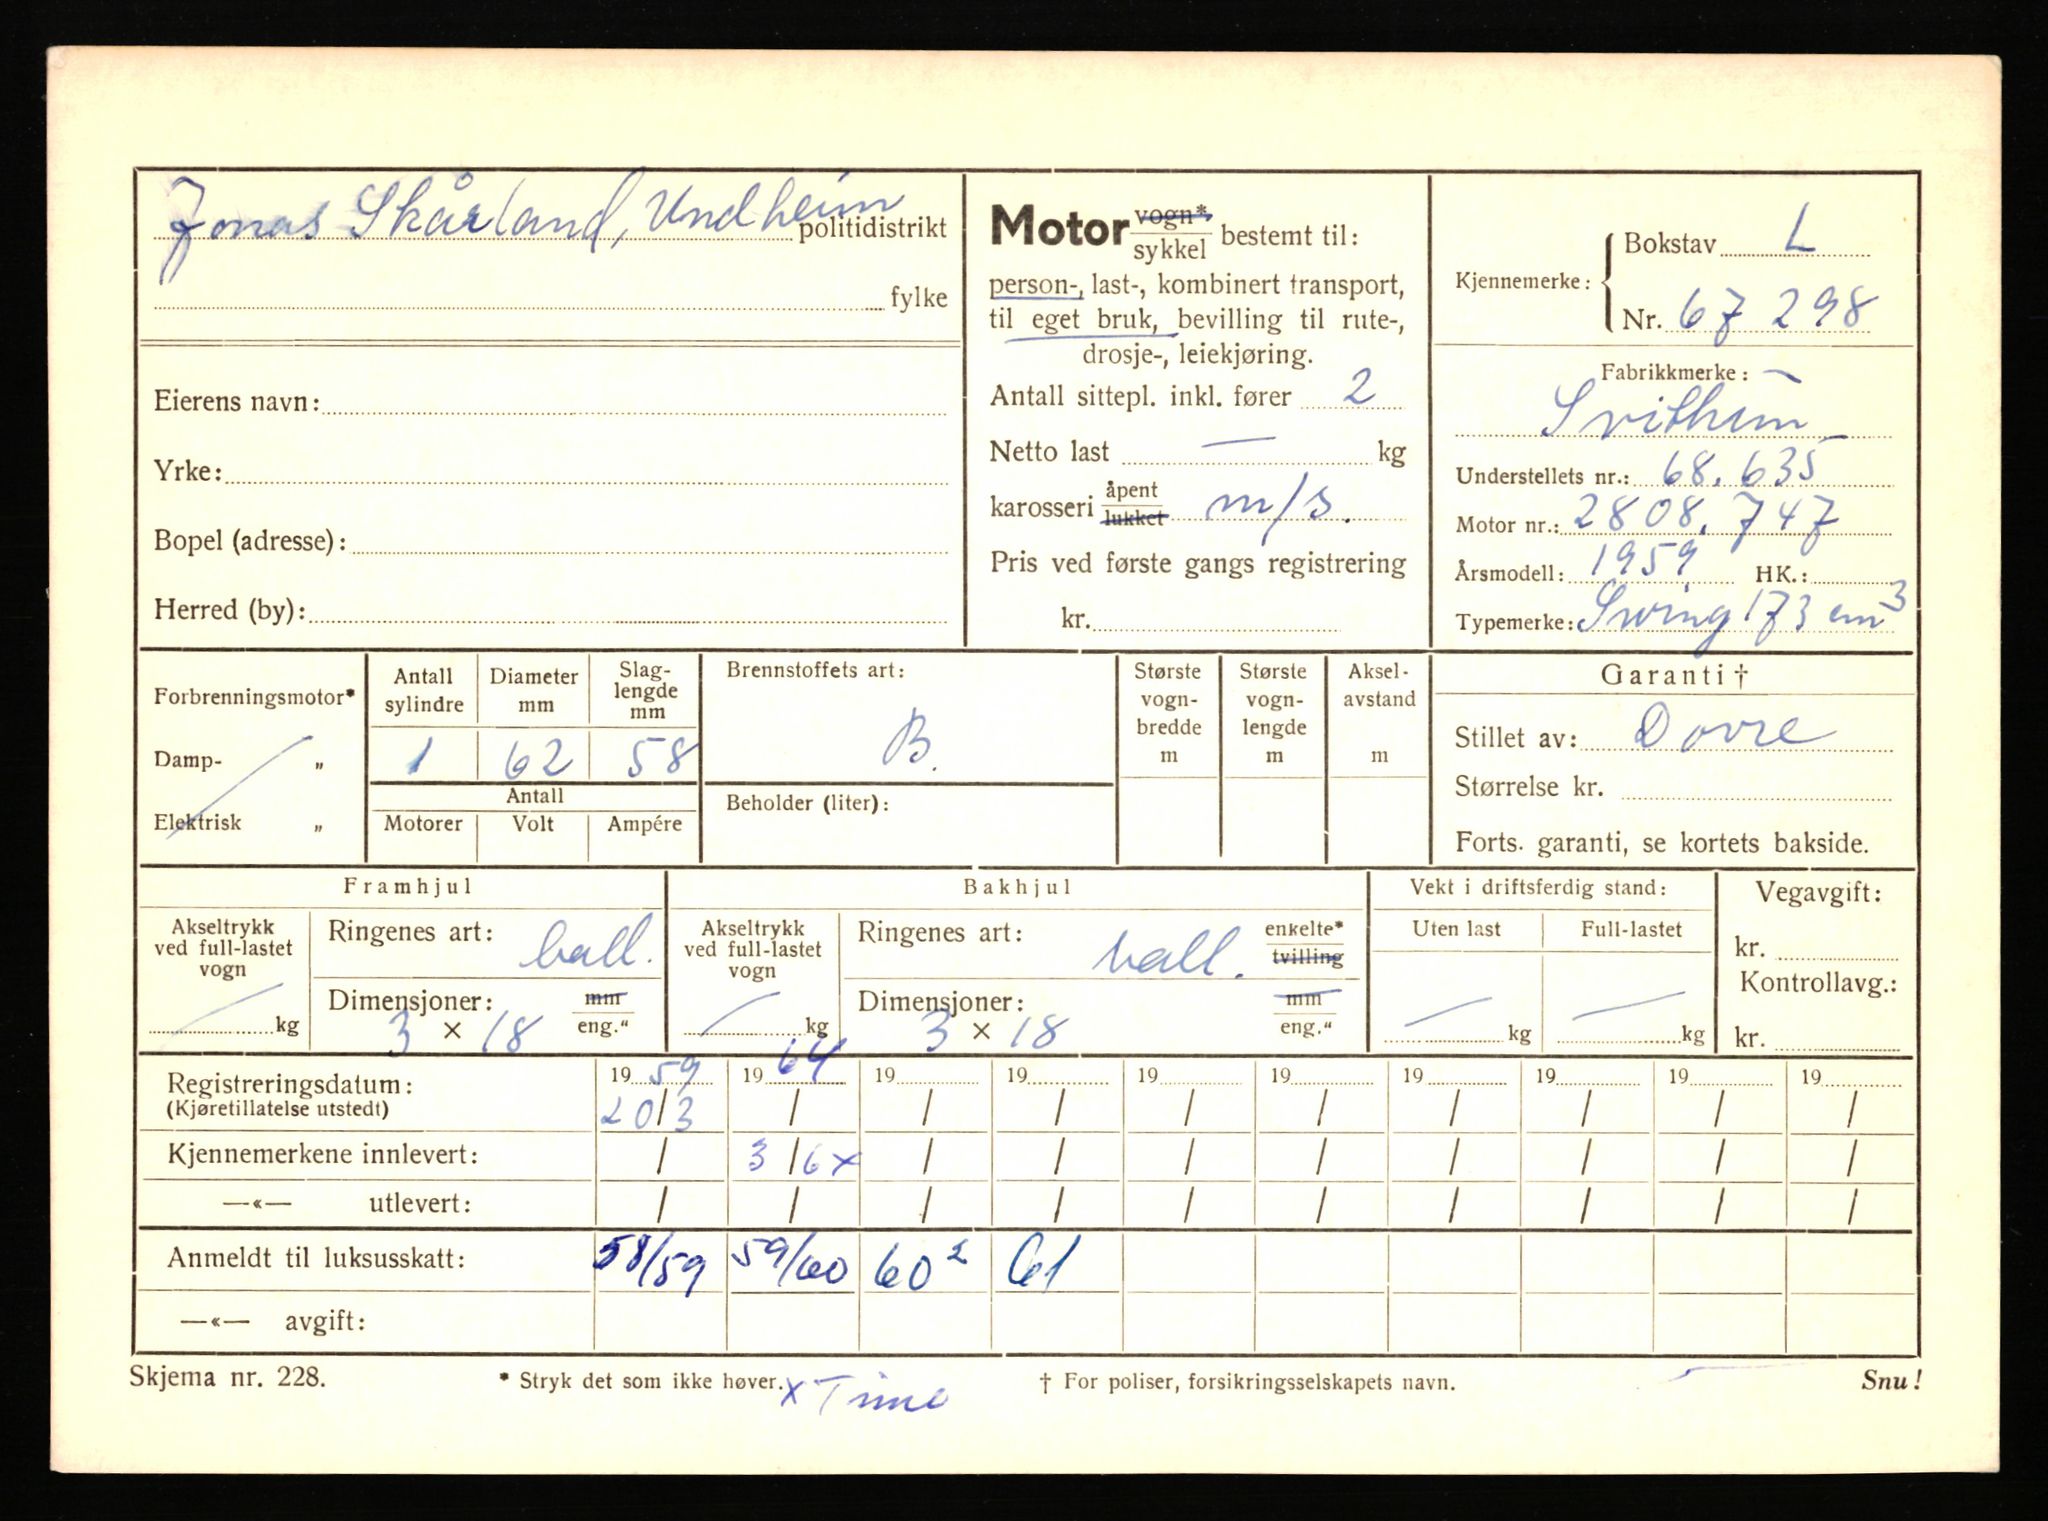 Jonas Skårland, Undheim politidistrikt
fylke
Eierens navn:
Yrke:
Bopel (adresse):
Herred (by):
Motor vogn* sykkel bestemt til:
person-, last-, kombinert transport,
til eget bruk, bevilling til rute-,
drosje-, leiekjøring.
Antall sittepl. inkl. fører 2
Netto last — kg
karosseri åpent lukket m/s.
Pris ved første gangs registrering
kr.
Kjennemerke: Bokstav L
Nr. 67 298
Fabrikkmerke:
Svithun
Understellets nr.: 68.635
Motor nr.: 2808.747
Årsmodell: 1959 HK.:
Typemerke: Swing 173 cm³
Forbrenningsmotor*
Damp- „
Elektrisk „
Antall sylindre 1
Diameter mm 62
Slag-lengde mm 58
Antall
Motorer Volt Ampére
Brennstoffets art:
B.
Beholder (liter):
Største vogn-bredde m
Største vogn-lengde m
Aksel-avstand m
Garanti †
Stillet av: Dovre
Størrelse kr.
Forts. garanti, se kortets bakside.
Framhjul
Akseltrykk ved full-lastet vogn — kg
Ringenes art: ball.
Dimensjoner: 3 × 18 mm eng."
Bakhjul
Akseltrykk ved full-lastet vogn — kg
Ringenes art: ball. enkelte* tvilling
Dimensjoner: 3 × 18 mm eng."
Vekt i driftsferdig stand:
Uten last Full-lastet
— kg — kg
Vegavgift:
kr.
Kontrollavg.:
kr.
Registreringsdatum: 19 59 19 64 19 19 19 19 19 19 19 19
(Kjøretillatelse utstedt) 20/3 / / / / / / / / /
Kjennemerkene innlevert: / 3/6 x / / / / / / / /
—«— utlevert: / / / / / / / / / /
Anmeldt til luksusskatt: 58/59 59/60 60² 61
—«— avgift:
Skjema nr. 228. * Stryk det som ikke høver. x Time † For poliser, forsikringsselskapets navn. Snu!